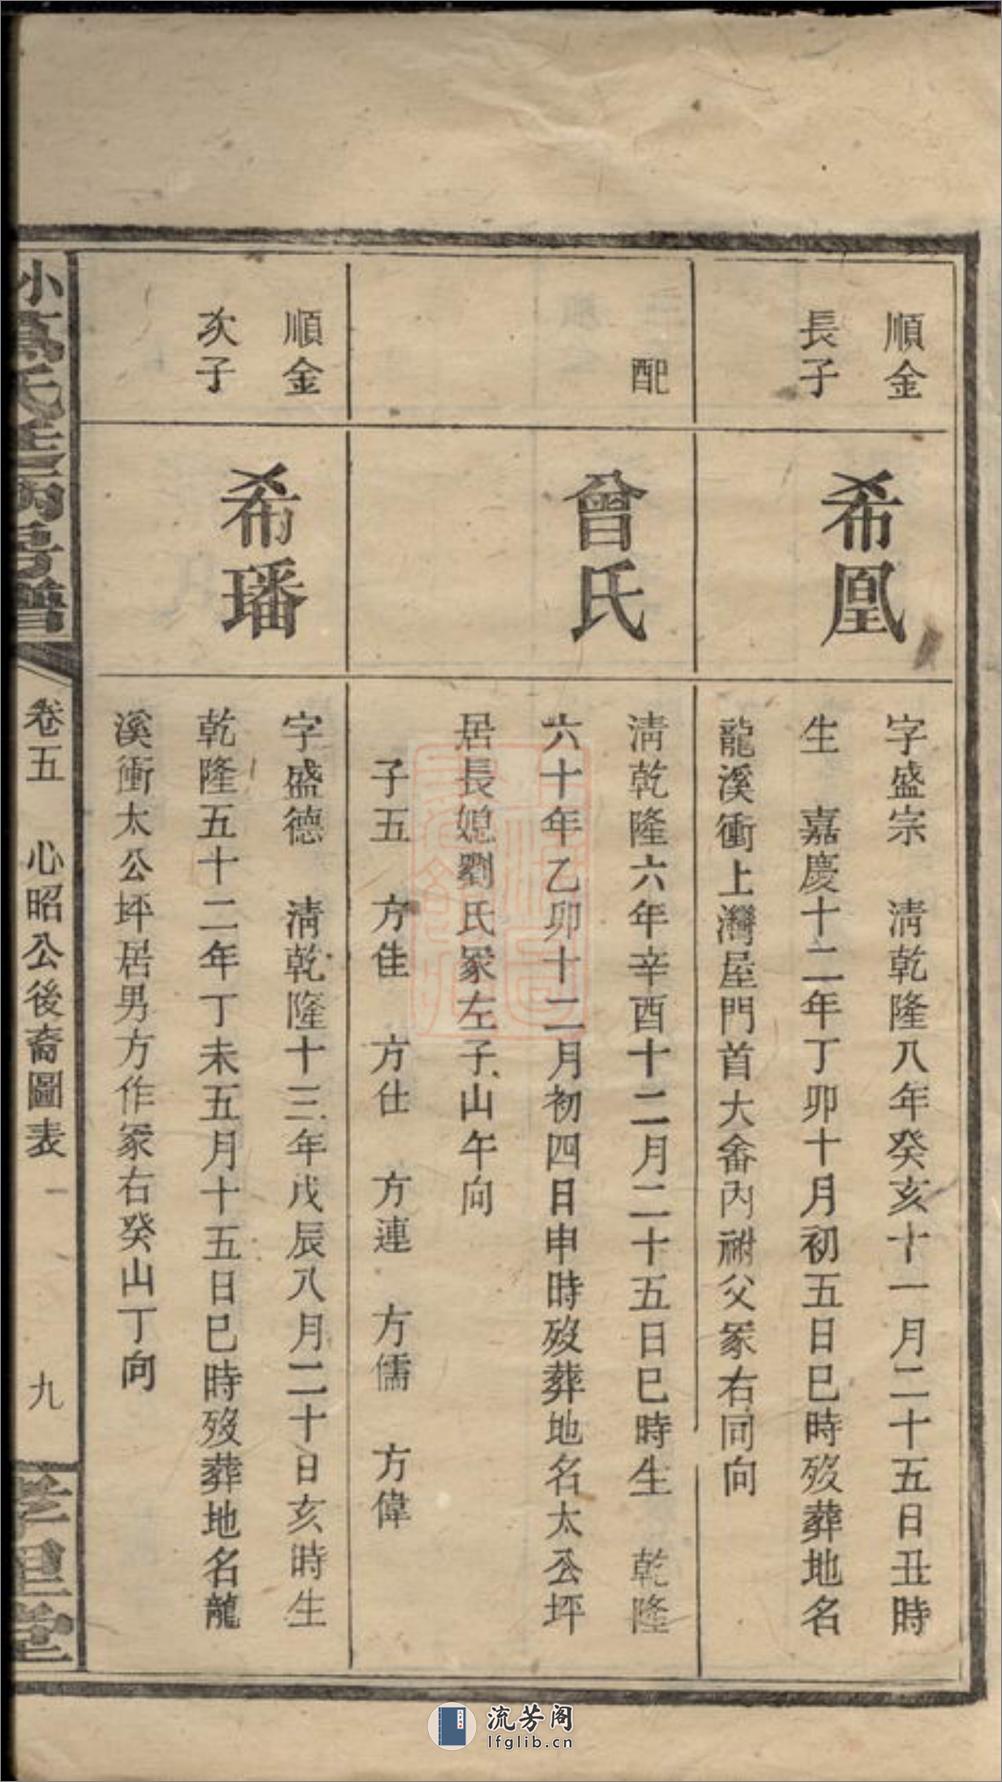 順金
長子
希凰
字盛宗　清乾隆八年癸亥十一月二十五日丑時
生　嘉慶十二年丁卯十月初五日巳時歿葬地名
龍溪衝上灣屋門首大畬內祔父冢右同向
配
曾氏
清乾隆六年辛酉十二月二十五日巳時生　乾隆
六十年乙卯十二月初四日申時歿葬地名太公坪
居長媳劉氏冢左子山午向
子五　方佳　方仕　方連　方儒　方偉
順金
次子
希璠
字盛德　清乾隆十三年戊辰八月二十日亥時生
乾隆五十二年丁未五月十五日巳時歿葬地名龍
溪衝太公坪居男方作冢右癸山丁向
卷五　心昭公後裔圖表
九
流芳阁
lfglib.cn